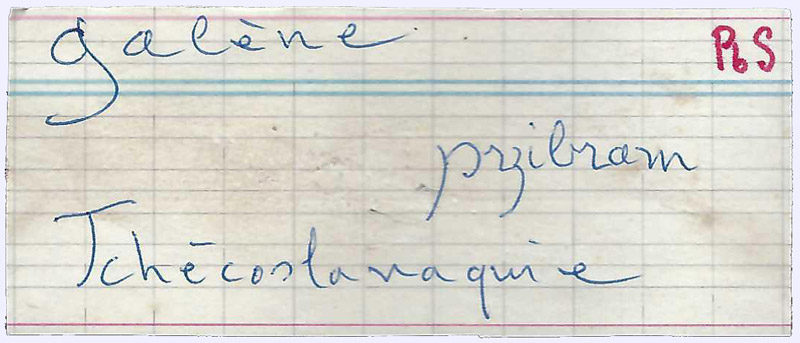 galène PbS
przibram
Tchécoslovaquie